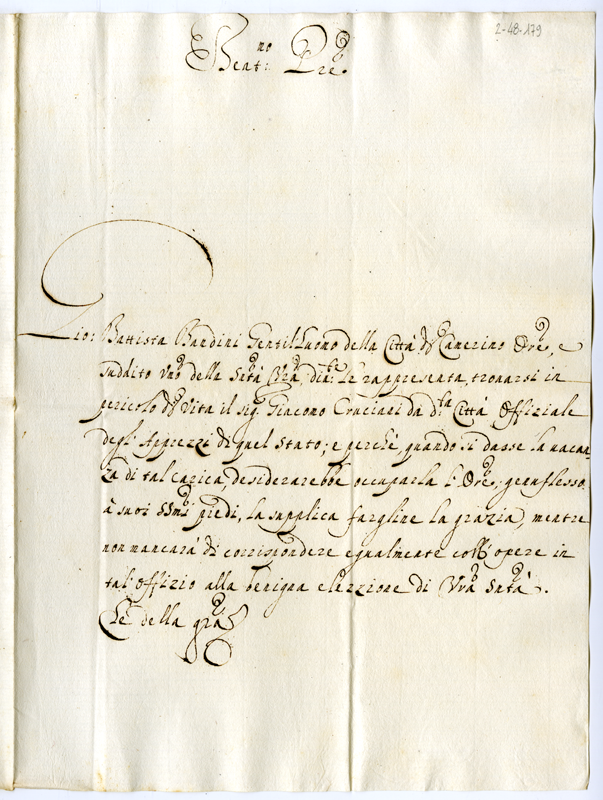 2-48-179
Beat:no Pre
Gio: Battista Bandini Gentilhuomo della Città di Camerino Ore, e
suddito umo della Stà Vra, dinte le rappresenta, trovarsi in
pericolo di Vita il sig: Giacomo Cruciani da d:ta Città Offiziale
degli Apprezzi di quel Stato; e perchè, quando si dasse la vacan=
za di tal carica desiderarebbe occuparla l'Ore, genuflesso
à suoi SSmi piedi, la supplica fargline la grazia, mentre
non mancarà di corrispondere egualmente coll'opere in
tal'offizio alla benigna elezzione di Vra Sntà.
Che della gra